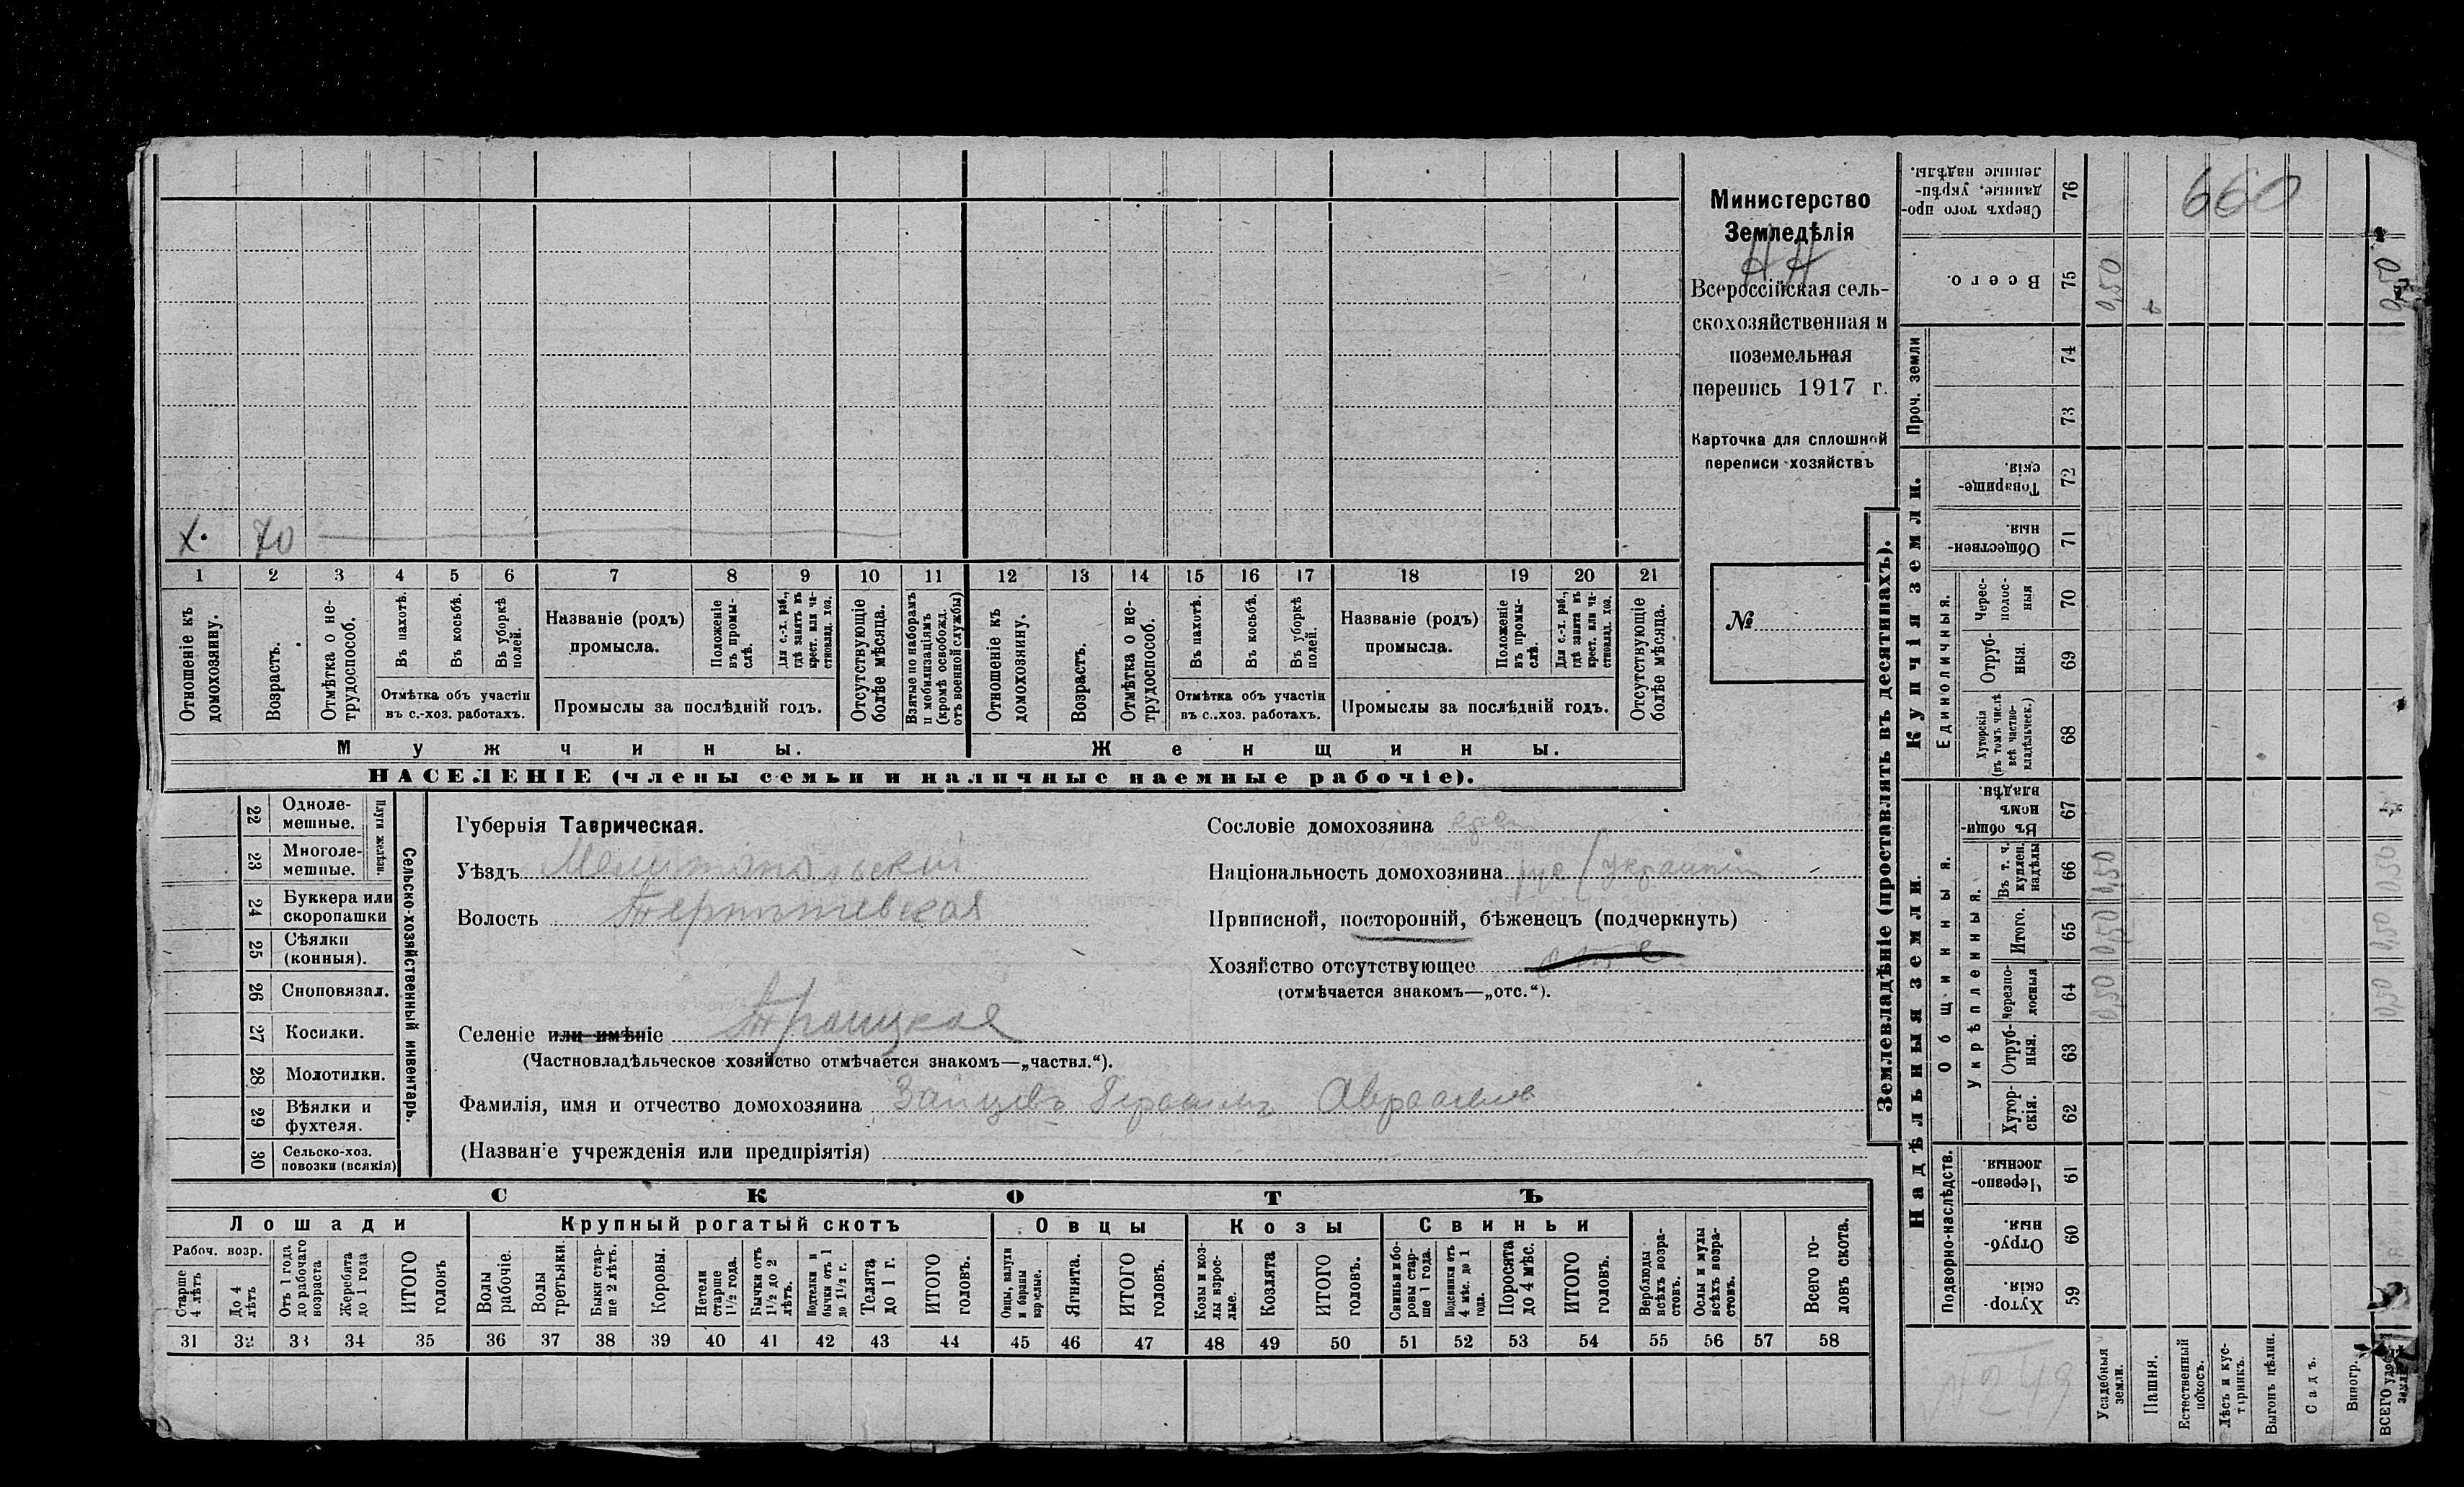 Министерство
Земледѣлія
Н Н
Всероссійская сель-
скохозяйственная и
поземельная
перепись 1917 г.
Карточка для сплошной
переписи хозяйствъ
№
х. 70
1 2 3 4 5 6 7 8 9 10 11 12 13 14 15 16 17 18 19 20 21
Отношеніе къ домохозяину.
Возрастъ.
Отмѣтка о не-трудоспособ.
Въ пахотѣ.
Въ косьбѣ.
Въ уборкѣ полей.
Отмѣтка объ участіи
въ с.-хоз. работахъ.
Названіе (родъ)
промысла.
Положеніе въ промы-слѣ.
Для с.-х. раб., гдѣ занятъ въ крест. или ча-стновлад. хоз.
Промыслы за послѣдній годъ.
Отсутствующіе болѣе мѣсяца.
Взятые по наборамъ и мобилизаціямъ (кромѣ освобожд. отъ военной службы)
Отношеніе къ домохозяину.
Возрастъ.
Отмѣтка о не-трудоспособ.
Въ пахотѣ.
Въ косьбѣ.
Въ уборкѣ полей.
Отмѣтка объ участіи
въ с.-хоз. работахъ.
Названіе (родъ)
промысла.
Положеніе въ промы-слѣ.
Для с.-х. раб., гдѣ занята въ крест. или ча-стновлад. хоз.
Промыслы за послѣдній годъ.
Отсутствующіе болѣе мѣсяца.
Мужчины. Женщины.
НАСЕЛЕНІЕ (члены семьи и наличные наемные рабочіе).
22 Одноле-мешные.
23 Многоле-мешные.
Плуги желѣзн.
24 Буккера или скоропашки
25 Сѣялки (конныя).
26 Сноповязал.
27 Косилки.
28 Молотилки.
29 Вѣялки и фухтеля.
30 Сельско-хоз. повозки (всякія)
Сельско-хозяйственный инвентарь.
Губернія Таврическая.
Уѣздъ Мелитопольскій
Волость
Селеніе или имѣніе Троицкое
(Частновладѣльческое хозяйство отмѣчается знакомъ—„частвл.“).
Фамилія, имя и отчество домохозяина Зайцевъ Герасимъ
(Названіе учрежденія или предпріятія)
Сословіе домохозяина
Національность домохозяина рус (украинц
Приписной, посторонній, бѣженецъ (подчеркнуть)
Хозяйство отсутствующее отс
(отмѣчается знакомъ—„отс.“).
СКОТЪ
Лошади
Рабоч. возр.
Старше 4 лѣтъ
До 4 лѣтъ
Отъ 1 года до рабочаго возраста
Жеребята до 1 года
ИТОГО головъ
Крупный рогатый скотъ
Волы рабочіе.
Волы третьяки.
Быки стар-ше 2 лѣтъ.
Коровы.
Нетели старше 1½ года.
Бычки отъ 1½ до 2 лѣтъ.
Подтелки и бычки отъ 1 до 1½ г.
Телята до 1 г.
ИТОГО головъ.
Овцы
Овцы, валухи и бараны взрослые.
Ягнята.
ИТОГО головъ.
Козы
Козы и коз-лы взрос-лые.
Козлята
ИТОГО головъ.
Свиньи
Свиньи и бо-ровы стар-ше 1 года.
Подсвинки отъ 4 мѣс. до 1 года.
Поросята до 4 мѣс.
ИТОГО головъ.
Верблюды всѣхъ возра-стовъ.
Ослы и мулы всѣхъ возра-стовъ.
Всего го-ловъ скота.
31 32 33 34 35 36 37 38 39 40 41 42 43 44 45 46 47 48 49 50 51 52 53 54 55 56 57 58
Землевладѣніе (проставлять въ десятинахъ).
Купчія земли.
Проч. земли
Сверхъ того про-данные, укрѣп-ленные надѣлы. 76
660
Всего. 75 0,50 0,50
74
73
Товарище-скія. 72
Обществен-ныя. 71
Единоличныя.
Черес-полос-ныя 70
Отруб-ныя. 69
Хуторскія (въ томъ числѣ всѣ частно-владѣльческ.) 68
Надѣльныя земли.
Общинныя.
Въ общи-номъ владѣн. 67
Укрѣпленныя.
Въ т. ч. куплен. надѣлы 66 0,50 0,50
Итого. 65 0,50 0,50
Черезпо-лосныя 64 0,50 0,50
Отруб-ныя. 63
Хутор-скія. 62
Подворно-наслѣдств.
Черезпо-лосныя. 61
Отруб-ныя. 60
Хутор-скія. 59
№ 249
Усадебныя земли.
Пашня.
Естественный покосъ.
Лѣсъ и кус-тарникъ.
Выгонъ цѣлин.
Садъ.
Виногр.
ВСЕГО